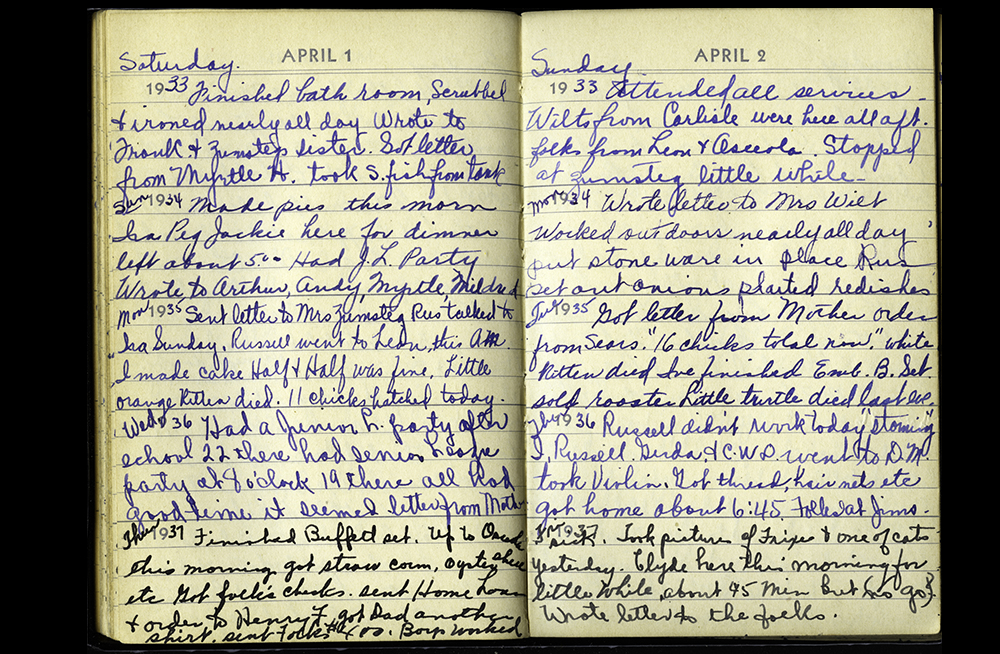 APRIL 1
Saturday.
1933 Finished bath room, Scrubbed
& ironed nearly all day Wrote to
Frank & Zumsteg sister. Got letter
from Myrtle H. took S. fish from tank
Sun 1934 Made pies this morn
Isa Peg Jackie here for dinner
left about 5:00 Had J. L. Party
Wrote to Arthur, Andy, Myrtle, Mildred
Mon 1935 Sent letter to Mrs Zumsteg Rus talked to
Isa Sunday. Russell went to Leon, this A.M.
I made cake Half & Half was fine, Little
orange Kitten died. 11 chicks hatched today.
Wed 36 Had a Junior L. party after
school 22 there had senior League
party at 8 o'clock 19 there all had
good time it seemed letter from Mother
Thur 1937 Finished Buffett set. Up to Osceola
this morning got straw corn, oyster shell
etc Got folk's checks. sent Home Loan
& order to Henry F. got Dad another
shirt. sent Folks 4.00. Boys worked
APRIL 2
Sunday
1933 Attended all services -
Wilts from Carlisle were here all aft.
folks from Leon & Osceola. Stopped
at Zumsteg little while -
Mon 1934 Wrote letter to Mrs Wilt
Worked outdoors nearly all day
put stone ware in place Rus
set out onions planted redishes
Tu 1935 Got letter from Mother order
from Sears. "16 chicks total now." white
Kitten died I've finished Emb. B. Set
sold rooster Little turtle died last eve
1936 Russell didn't work today "storming"
I, Russell, Gerda, & C.W.S. went to D. M.
took Violin. Got thread, hair nets etc
got home about 6:45. Folks at Jims.
1937 Took picture of Trixe & one of cats
yesterday. Clyde here this morning for
little while, about 45 Min But go
Wrote letter to the folks.